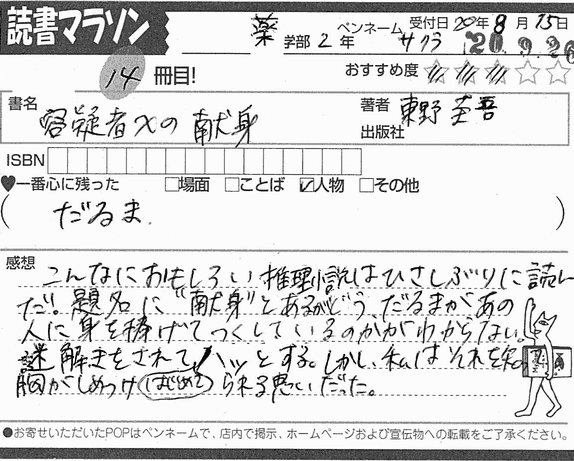 読書マラソン
薬 学部 2 年
ペンネーム サクラ
受付日 20年 8月 15日
20. 9. 26
14 冊目!
おすすめ度 ☆☆☆☆☆
書名 容疑者Xの献身
著者 東野圭吾
出版社
ISBN
♥一番心に残った □場面 □ことば ☑人物 □その他
( だるま. )
感想
こんなにおもしろい推理小説はひさしぶりに読ん
だ! 題名に"献身"とあるがどう、だるまがあの
人に身を捧げてつくしているのかがわからない。
謎解きをされてハッとする。しかし、私はそれを知
胸がしめつけ はじめて られる思いだった。
●お寄せいただいたPOPはペンネームで、店内で掲示、ホームページおよび宣伝物への転載をご了承ください。